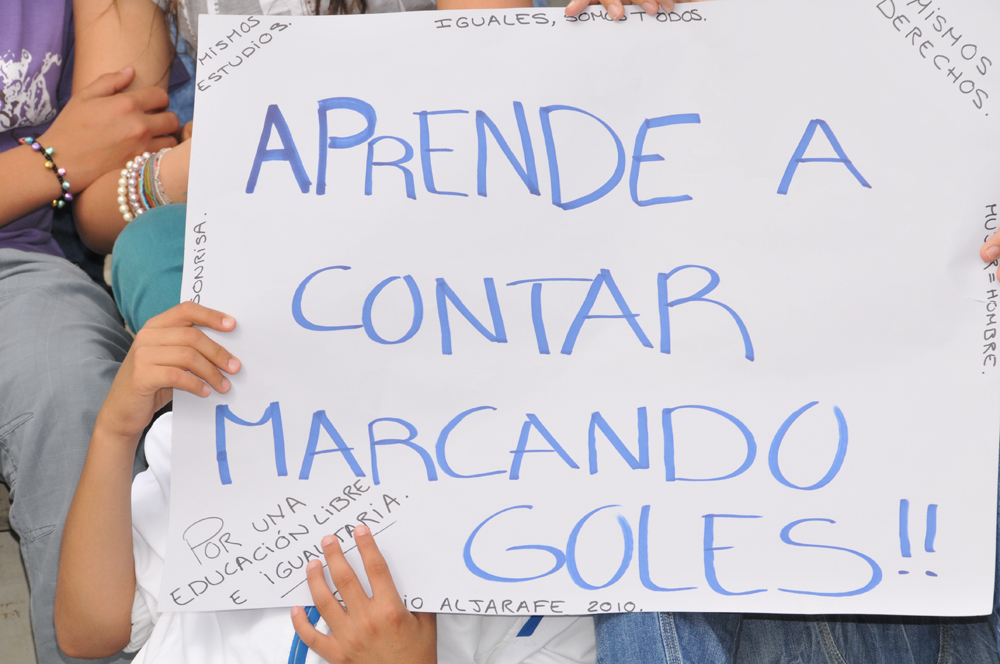 MISMOS
ESTUDIOS.
IGUALES, SOMOS TODOS.
MISMOS
DERECHOS.
APRENDE A
CONTAR
MARCANDO
GOLES!!
SONRISA.
MUJER = HOMBRE.
POR UNA
EDUCACIÓN LIBRE
E IGUALITARIA.
ALJARAFE 2010.